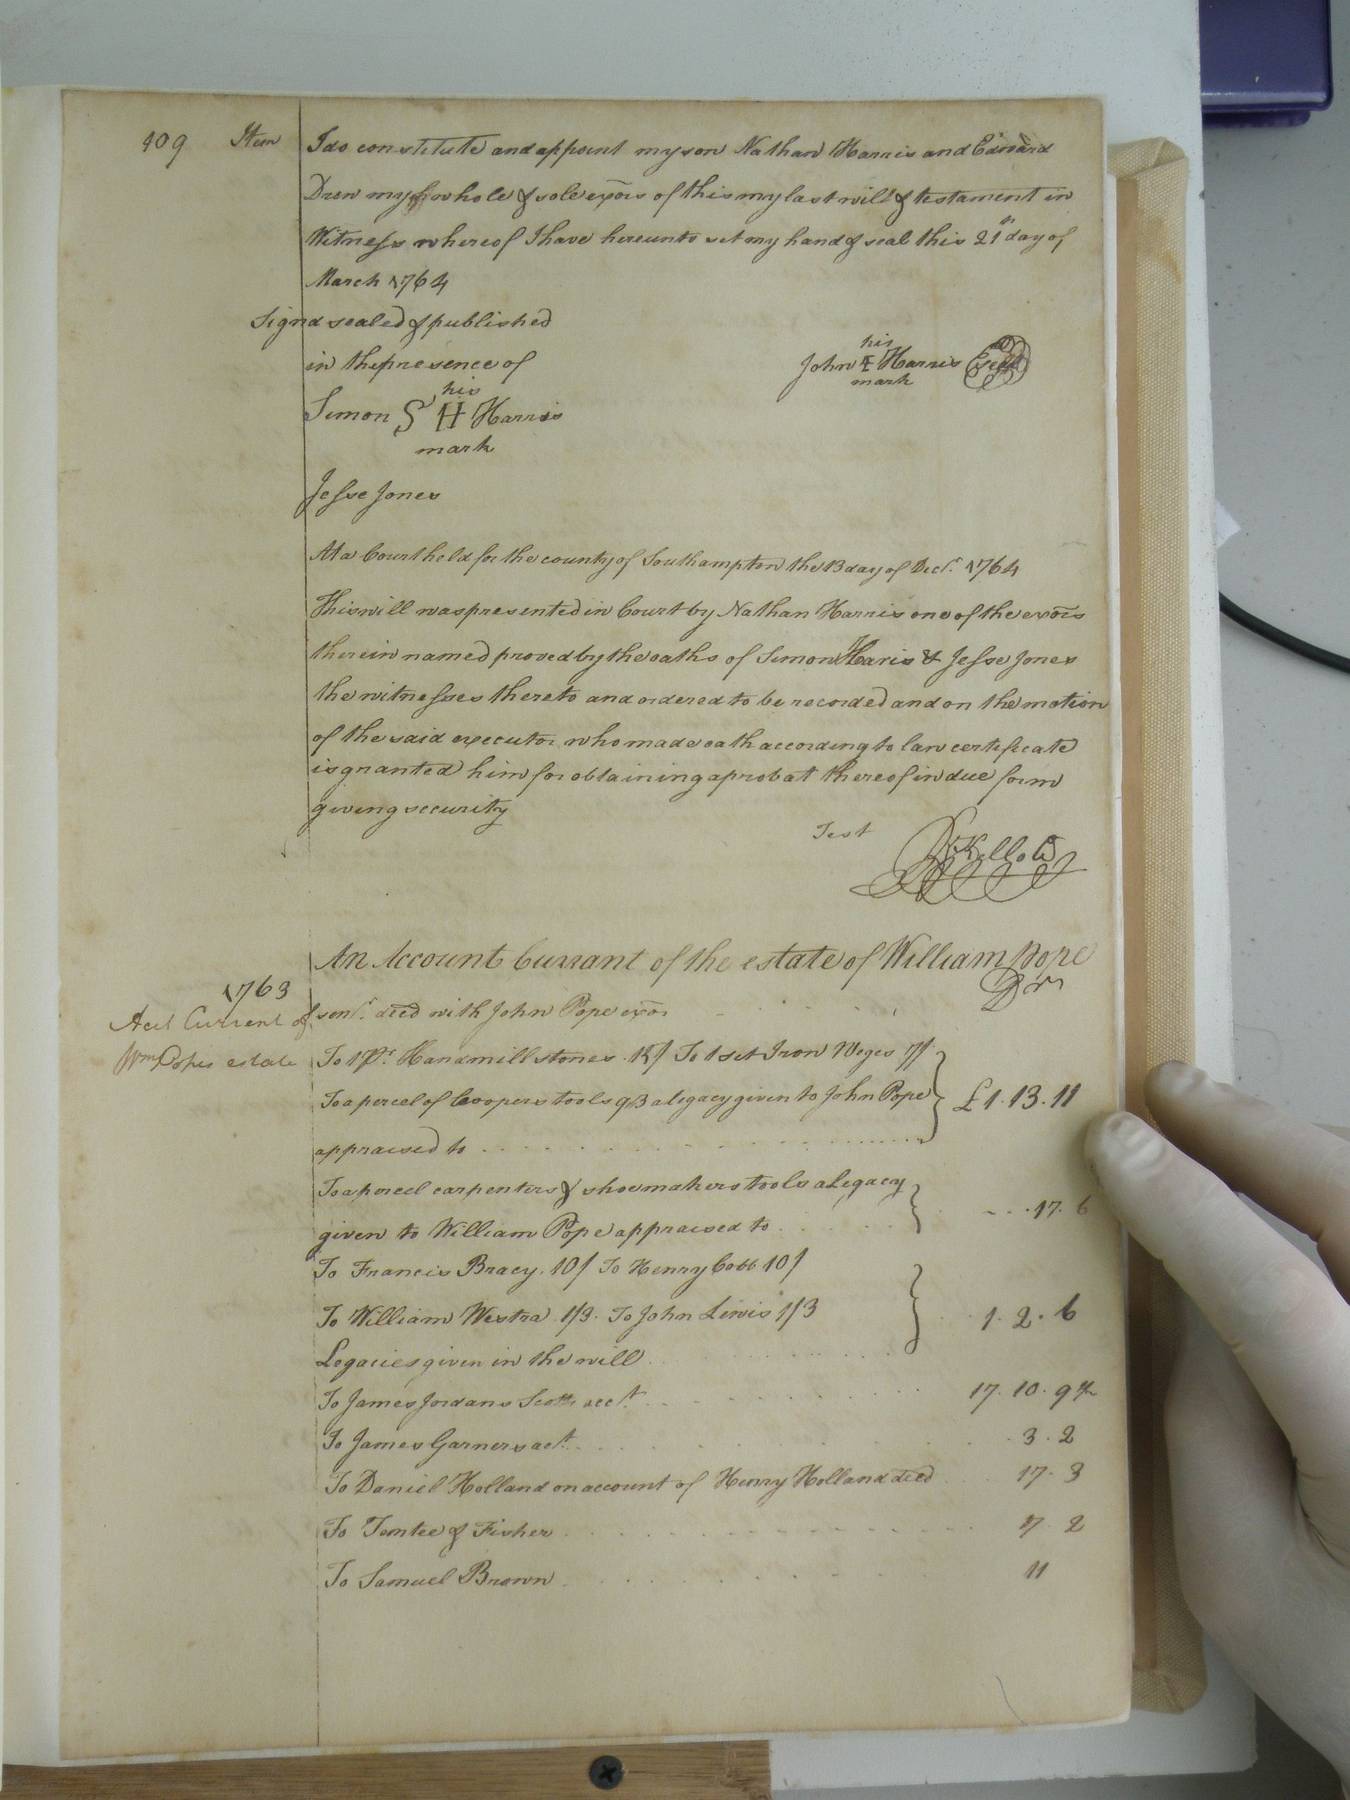 409 Item I do constitute and appoint my son Nathan Harris and Edward
Drew my whole & sole exōrs of this my last will & testament in
Witness whereof I have hereunto set my hand & seal this 21th day of
March 1764
Signd sealed & published
in the presence of
his
John E Harris Seal
mark
his
Simon S H Harris
mark
Jesse Jones
At a Court held for the county of Southampton the 13 day of Decr. 1764
This will was presented in Court by Nathan Harris one of the exōrs
therein named proved by the oaths of Simon Haris & Jesse Jones
the witnesses thereto and ordered to be recorded and on the motion
of the said executor who made oath according to law certificate
is granted him for obtaining a probat thereof in due form
giving security
Test
R Kello C
An Account Currant of the estate of William Pope
Dr
1763
Act Current of
Wm Popes estate
senr. decd with John Pope exōr
To 1 Pr. Handmill stones 15/ To 1 set Iron Weges 7/
To a percel of Coopers tools 9/3 a legacy given to John Pope
appraised to £1.13.11
To a percel carpenters & shoemakers tools a Legacy
given to William Pope appraised to 17.6
To Francis Bracy. 10/ To Henry Cobb 10/
To William Westra 1/3. To John Lewis 1/3
Legacies given in the will 1.2.6
To James Jordans Scott acct. 17.10.9
To James Garners act. 3.2
To Daniel Holland on account of Henry Holland decd 17.3
To & Fisher 7.2
To Samuel Brown 11